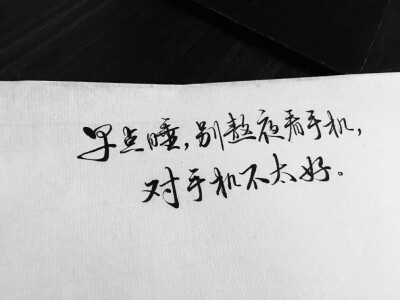 早点睡,别熬夜看手机,
对手机不太好。